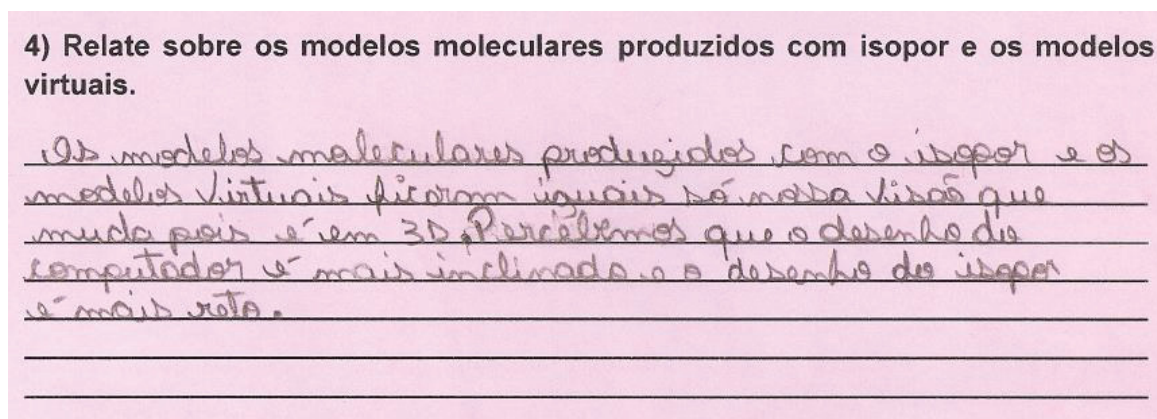 4) Relate sobre os modelos moleculares produzidos com isopor e os modelos
virtuais.
Os modelos moleculares produzidos com o isopor e os
modelos virtuais ficaram iguais só nossa visão que
muda pois é em 3D. Percebemos que o desenho do
computador é mais inclinado e o desenho do isopor
é mais reto.